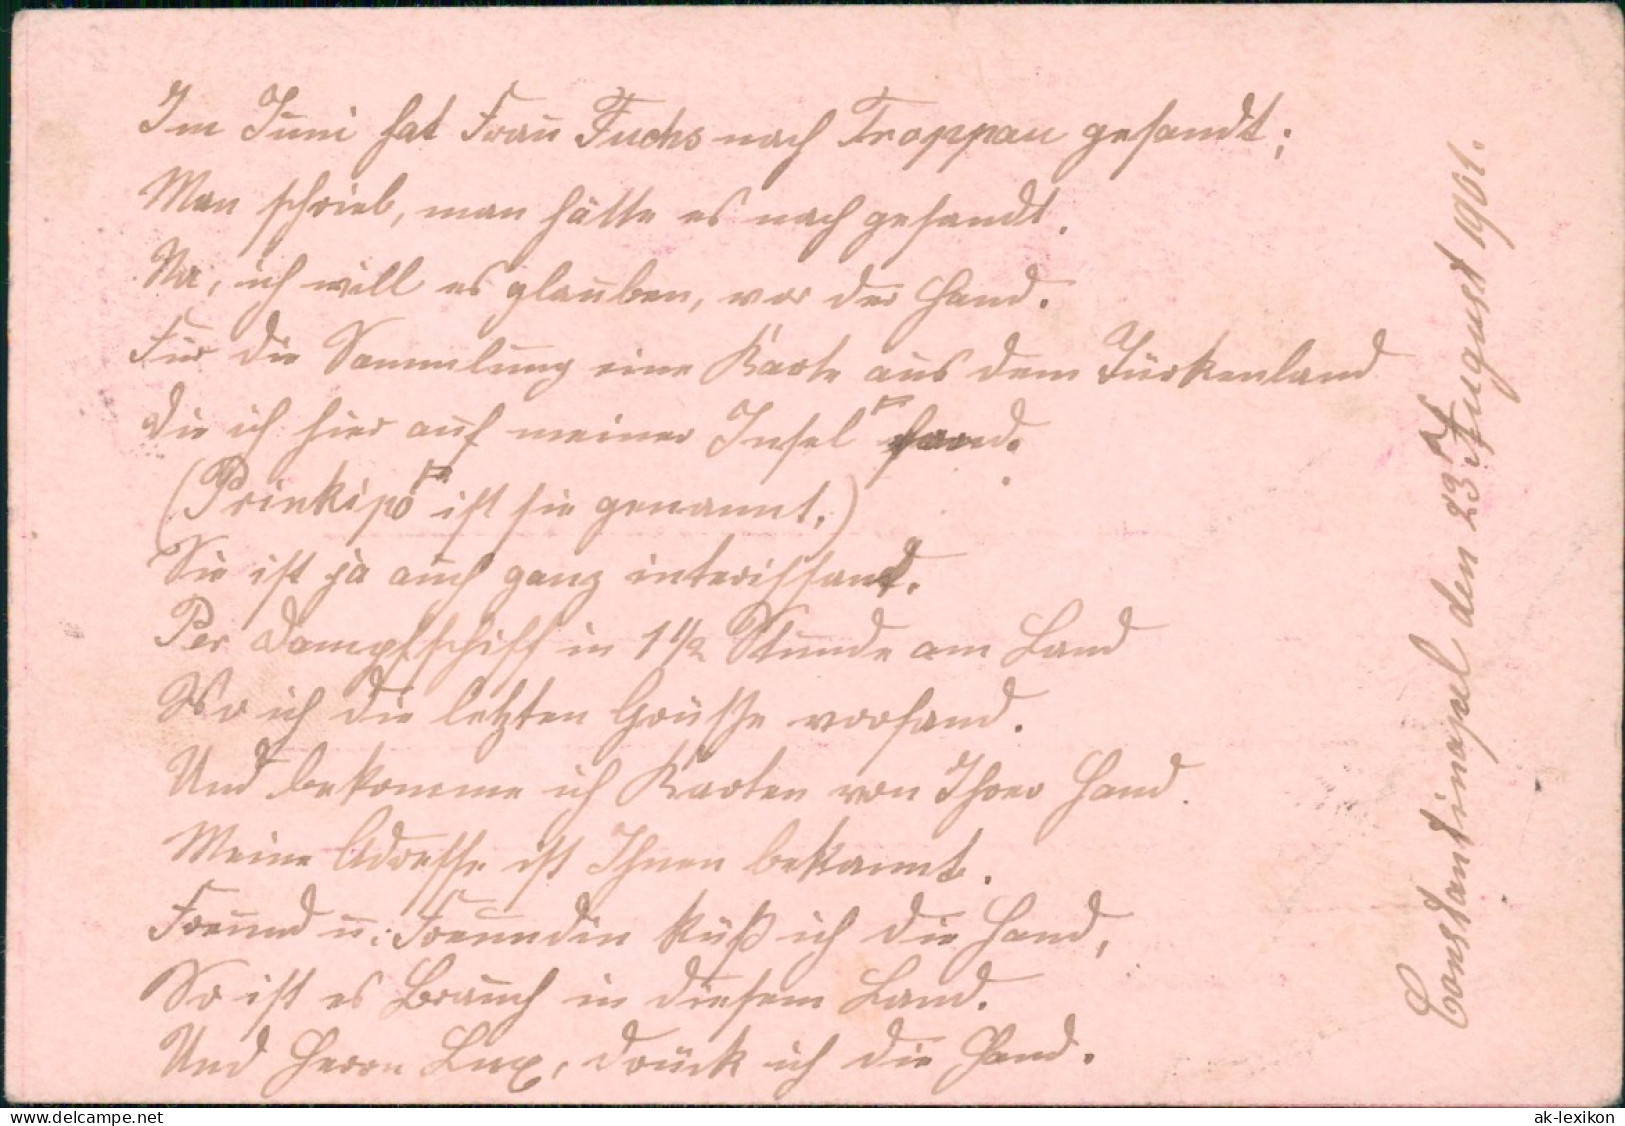 Im Juni hat Frau Fuchs nach Troppau gesandt;
Man schrieb, man hätte es nach gesandt.
Na, ich will es glauben, vor der Hand.
Für die Sammlung eine Karte aus dem Türkenland
die ich hier auf meiner Insel fand.
(Prinkipo ist sie genannt.)
Sie ist ja auch ganz interissant.
Per Dampfschiff in 1 1/2 Stunde am Land
Wo ich die letzten Grüsse vorfand.
Und bekomme ich Karten von Ihrer Hand.
Meine Adresse ist Ihnen bekannt.
Freund u. Freundin küß ich die Hand,
So ist es Brauch in diesem Land.
Und Herrn Lux, drück ich die Hand.
Constantinopel den 23 August 1901.
www.delcampe.net
ak-lexikon